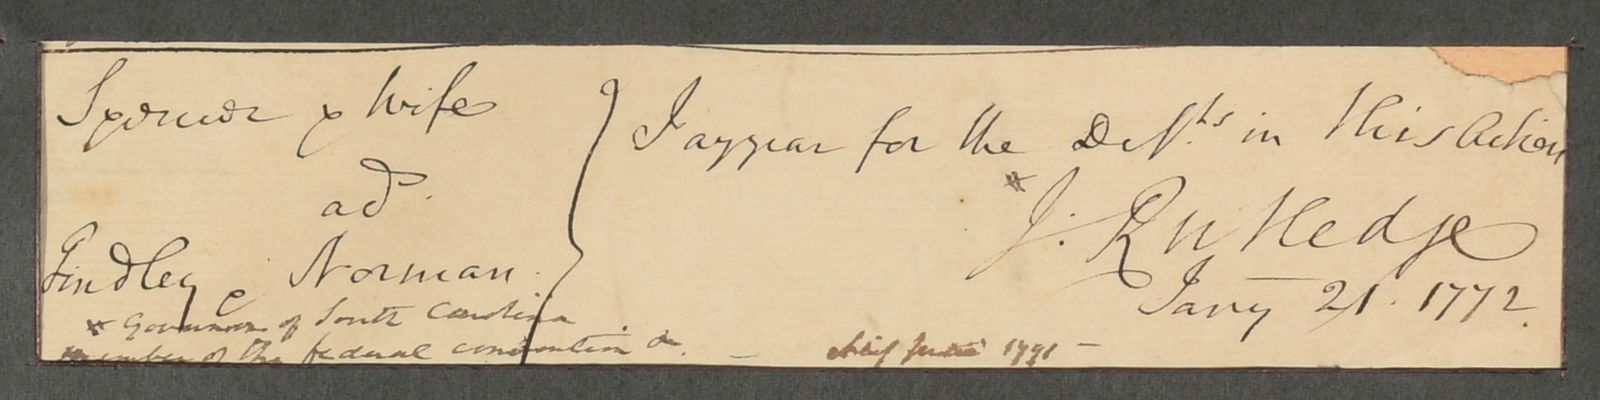 Spencer & Wife
ad
Findley & Norman.
I appear for the Deft.s in this Action
* J. Rutledge
Jany 21. 1772.
* Governor of South Carolina
member of the federal convention &c. — Chief Justice 1791 —